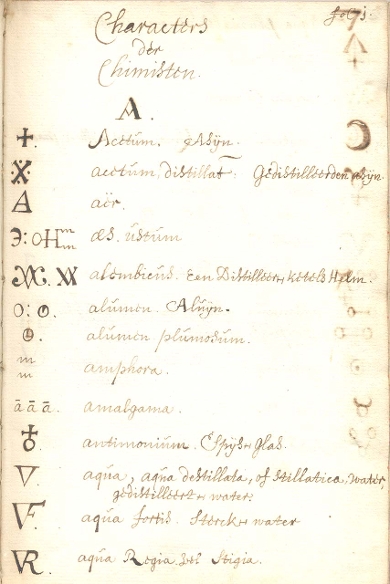 Characters
der
Chimisten.
A.
Acetum. Asÿn.
acetum distillat: Gedistilleerden asÿn
aër.
æs. ustum
alembicus. Een Distilleer, ketels Helm.
alumen. Aluÿn.
alumen plumosum.
amphora.
ā ā ā. amalgama.
antimonium. Spÿs Glas.
aqua, aqua destillata, of stillatica. water,
gedistilleert water.
aqua fortis. Sterck water
aqua Regia. vel Stigia.